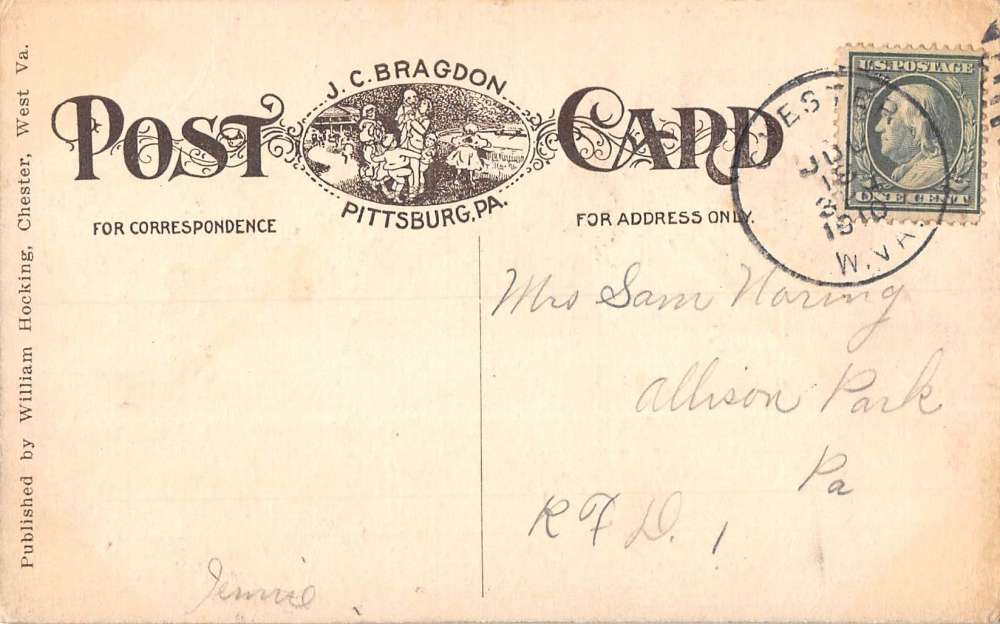 Published by William Hocking, Chester, West Va.
POST CARD
J. C. BRAGDON
PITTSBURG, PA.
FOR CORRESPONDENCE
FOR ADDRESS ONLY.
U.S. POSTAGE
ONE CENT
CHESTER
JUL
1910
W. VA.
Mrs Sam Noring
Allison Park
Pa
R F D. 1
Jennie